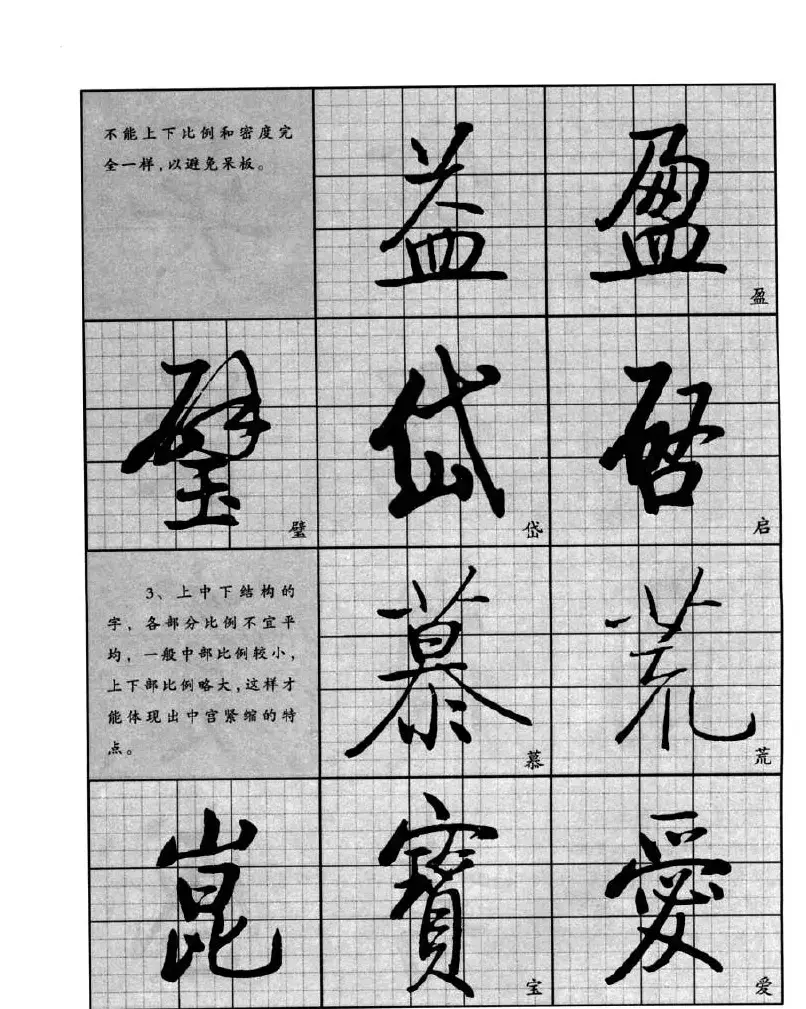 不能上下比例和密度完
全一样，以避免呆板。
益 盈
盈
璧 岱 啓
璧 岱 启
3、上中下结构的
字，各部分比例不宜平
均，一般中部比例较小，
上下部比例略大，这样才
能体现出中宫紧缩的特
点。
慕 荒
慕 荒
崑 寶 愛
宝 爱